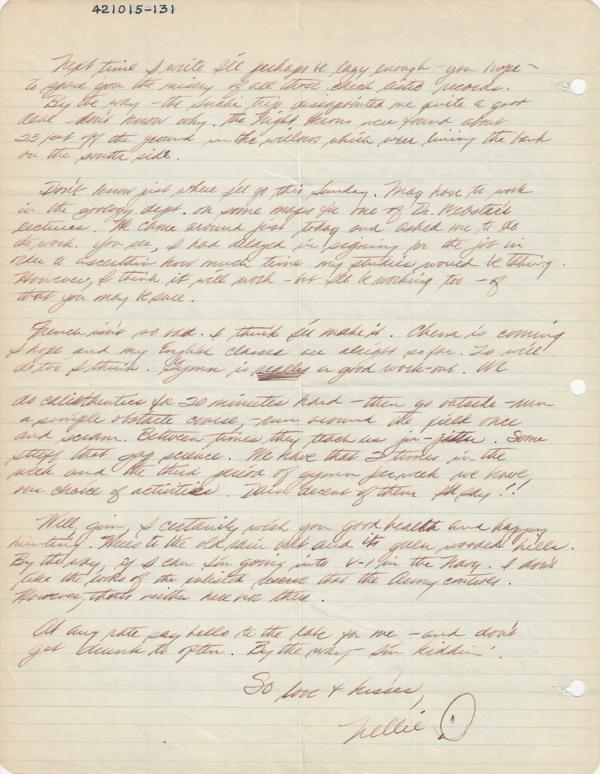 421015-131
Next time I write I'll perhaps be lazy enough - you hope -
to spare you the misery of all those check listed records.
By the way - the Sunday trip disappointed me quite a good
deal - don't know why. The Night Herons were found about
25 feet off the ground in the willows which were lining the bank
on the south side.
Don't know just where I'll go this Sunday. May have to work
in the geology dept. on some maps for one of Dr. Webster's
lectures. He came around just today and asked me to do
the work. You see, I had delayed in signing for the job in
order to ascertain how much time my studies would be taking.
However, I think it will work - but I'll be working too - of
that you may be sure.
French isn't so bad. I think I'll make it. Chem is coming
I hope and my English classes are alright so far. Zo will
do too I think. Gymn is really a good work-out. We
do calisthentics for 20 minutes hard - then go outside - run
a simple obstacle course, - run around the field once
and scram. Between times they teach us jiu-jitsu. Some
stuff that gay science. We have that 2 times in the
week and the third period of gymn per week we have
our choice of activities. Darn decent of them I'd say!!
Well, Jim, I certainly wish you good health and happy
hunting. Here's to the old rain belt and its green wooded hills.
By the way, if I can I'm going into V-1 in the Navy. I don't
like the looks of the enlisted reserve that the Army controls.
However, that's neither here nor there.
At any rate say hello to the lake for me - and don't
get drunk to often. By the way - I'm kiddin'.
So love & kisses,
Nellie